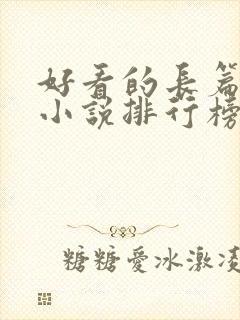 好看的長篇
小說排行榜
糖糖愛冰激凌